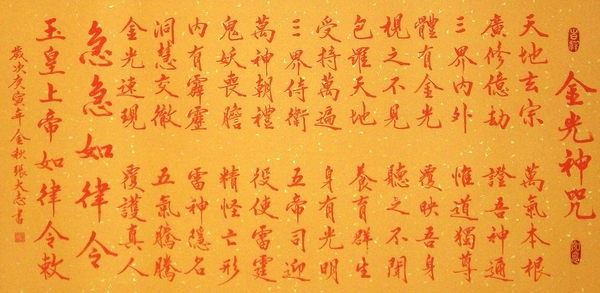 金光神咒
天地玄宗 萬氣本根
廣修億劫 證吾神通
三界內外 惟道獨尊
體有金光 覆映吾身
視之不見 聽之不聞
包羅天地 養有群生
受持萬遍 身有光明
三界侍衛 五帝司迎
萬神朝禮 役使雷霆
鬼妖喪膽 精怪亡形
內有霹靂 雷神隱名
洞慧交徹 五氣騰騰
金光速現 覆護真人
急急如律令
玉皇上帝如律令敕
歲次庚寅年金秋張大志書